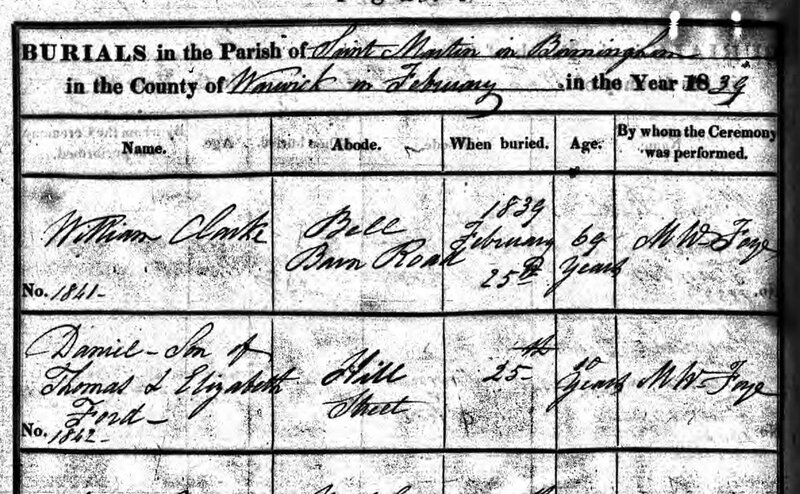 BURIALS in the Parish of Saint Martin in Birmingham
in the County of Warwick in February in the Year 1839
Name. Abode. When buried. Age. By whom the Ceremony was performed.
William Clarke
Bell
Barn Road
1839
February
25th
69
Years
M W Foye
No. 1841-
Daniel - Son of
Thomas & Elizabeth
Ford-
Hill
Street
25th
Years
M W Foye
No. 1842-